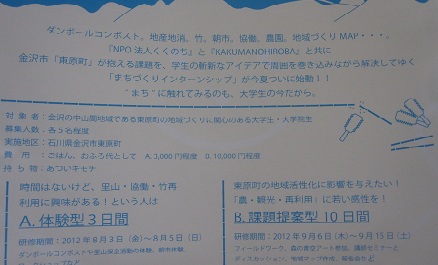 ダンボールコンポスト、地産地消、竹、朝市、協働、農園、地域づくりMAP・・・。
『NPO法人くくのち』と『KAKUMANOHIROBA』と共に
金沢市「東原町」が抱える課題を、学生の斬新なアイデアで周囲を巻き込みながら解決してゆく
「まちづくりインターンシップ」が今夏ついに始動！！
"まち"に触れてみるのも、大学生の今だから。
対 象 者：金沢の中山間地域である東原町の地域づくりに関心のある大学生・大学院生
募集人数：各5名程度
実施地区：石川県金沢市東原町
費 用：ごはん、おふろ代として A.3,000円程度 D.10,000円程度
持 ち 物：あついキモチ
時間はないけど、里山・協働・竹再
利用に興味がある！という人は
A. 体験型3日間
研修期間：2012年8月3日（金）～8月5日（日）
ダンボールコンポストや里山保全活動の体験、朝市体験、
東原町の地域活性化に影響を与えたい！
「農・観光・再利用」に若い感性を！
B. 課題提案型10日間
研修期間：2012年9月6日（木）～9月15日（土）
フィールドワーク、森の青空アート参加、講師セミナーと
ディスカッション、地域マップ作成、報告会など